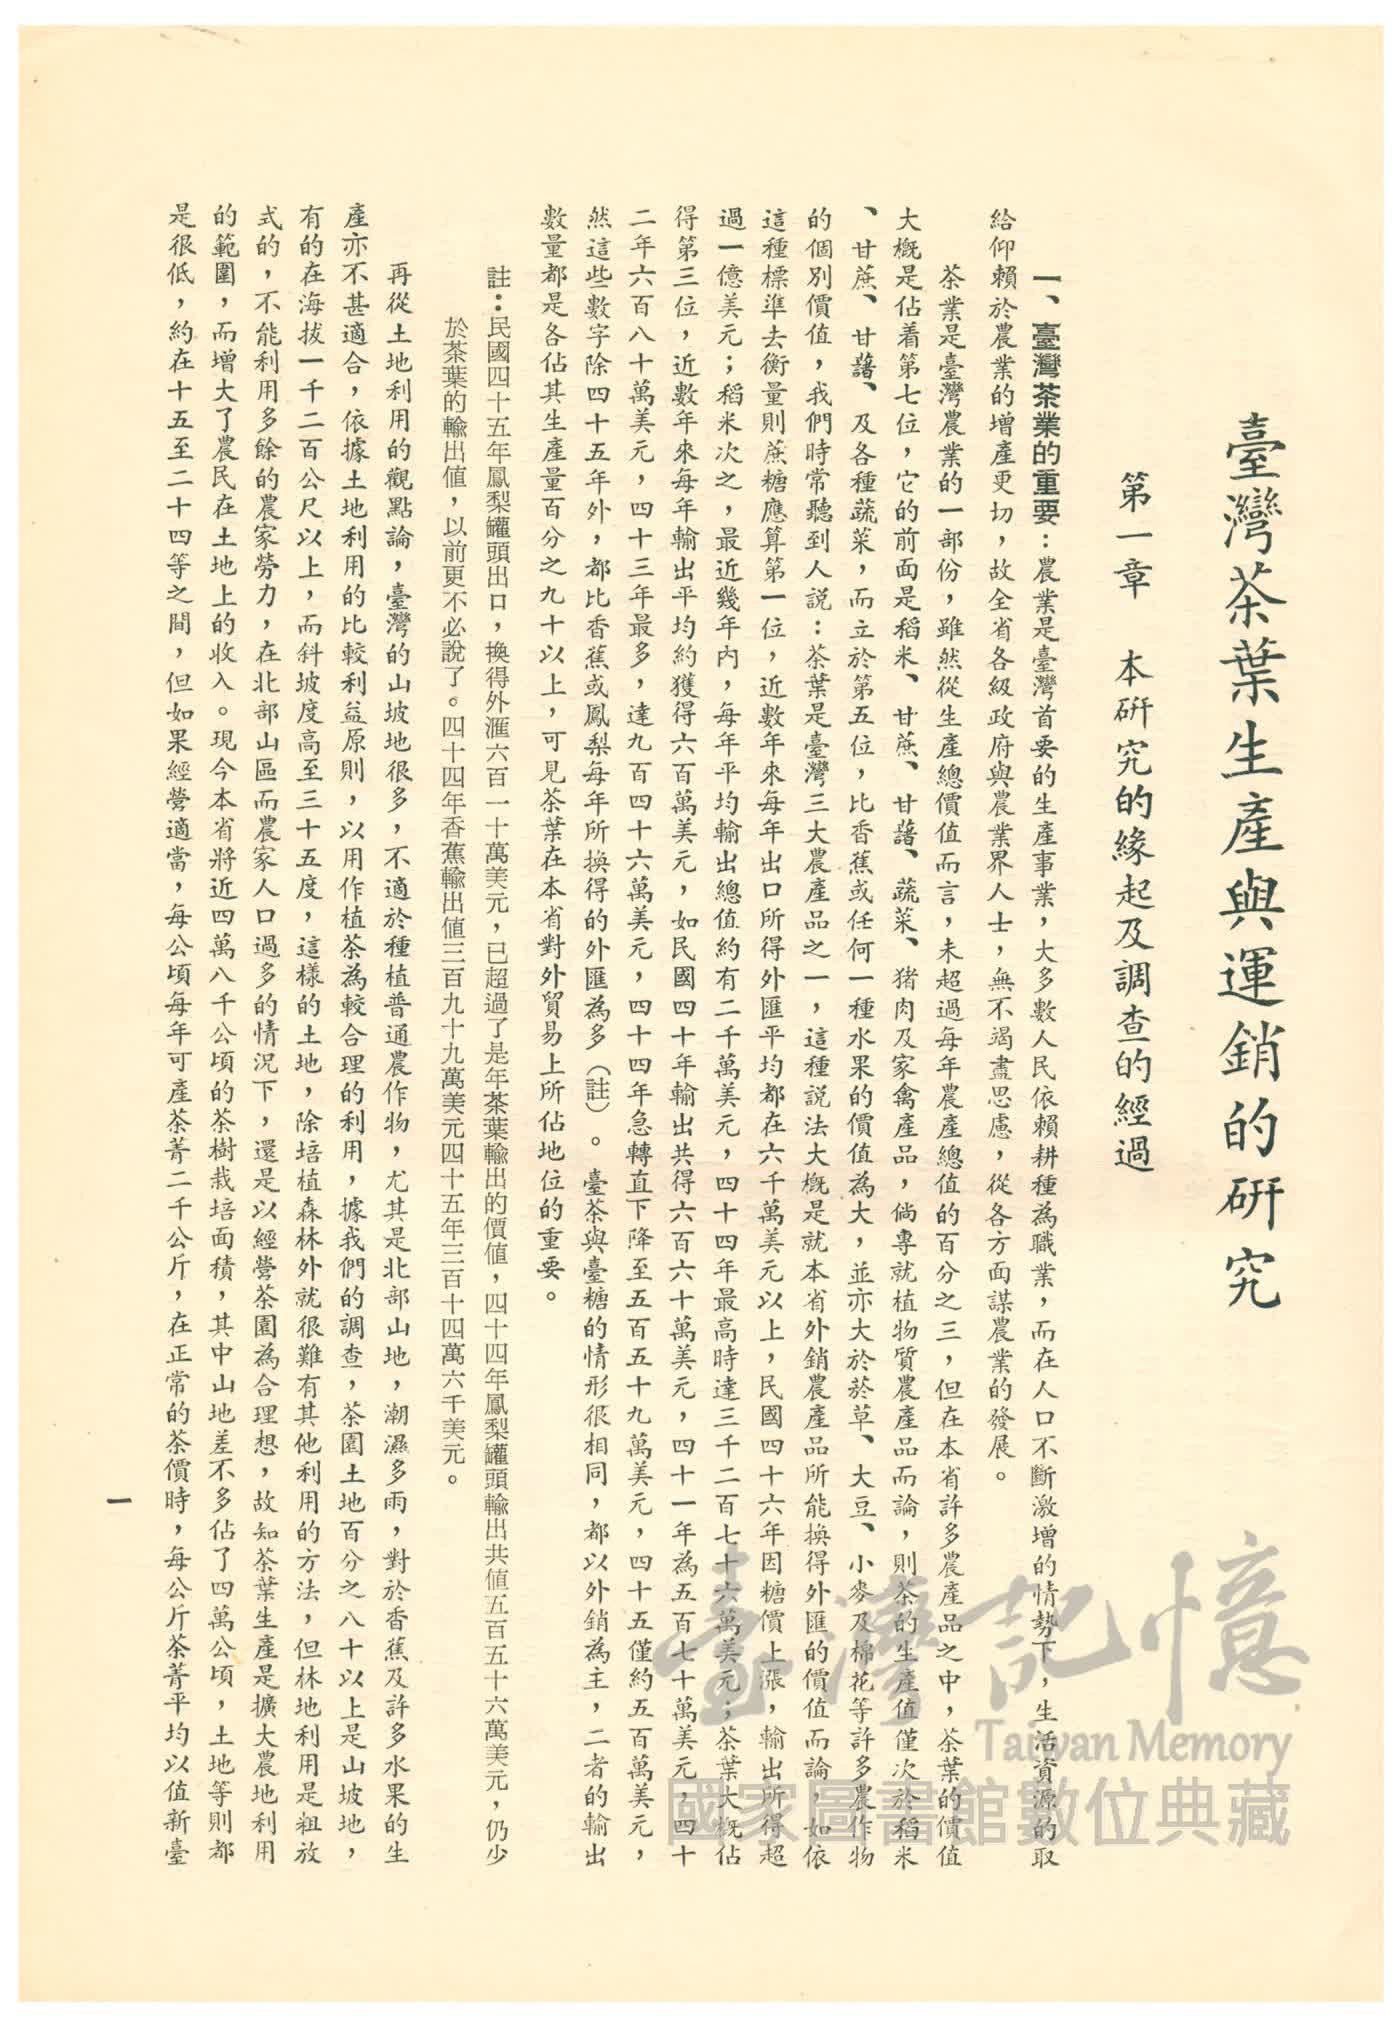 臺灣茶葉生產與運銷的研究
第一章　本研究的緣起及調查的經過
一、臺灣茶業的重要：農業是臺灣首要的生產事業，大多數人民依賴耕種為職業，而在人口不斷激增的情勢下，生活資源的取
給仰賴於農業的增產更切，故全省各級政府與農業界人士，無不竭盡思慮，從各方面謀農業的發展。
茶業是臺灣農業的一部份，雖然從生產總價值而言，未超過每年農產總值的百分之三，但在本省許多農產品之中，茶葉的價值
大概是佔着第七位，它的前面是稻米、甘蔗、甘藷、蔬菜、猪肉及家禽產品，倘專就植物質農產品而論，則茶的生產值僅次於稻米
、甘蔗、甘藷、及各種蔬菜，而立於第五位，比香蕉或任何一種水果的價值為大，並亦大於菸草、大豆、小麥及棉花等許多農作物
的個別價值，我們時常聽到人說：茶葉是臺灣三大農產品之一，這種說法大概是就本省外銷農產品所能換得外匯的價值而論，如依
這種標準去衡量則蔗糖應算第一位，近數年來每年出口所得外匯平均都在六千萬美元以上，民國四十六年因糖價上漲，輸出所得超
過一億美元；稻米次之，最近幾年內，每年平均輸出總值約有二千萬美元，四十四年最高時達三千二百七十六萬美元；茶葉大概佔
得第三位，近數年來每年輸出平均約獲得六百萬美元，如民國四十年輸出共得六百六十萬美元，四十一年為五百七十萬美元，四十
二年六百八十萬美元，四十三年最多，達九百四十六萬美元，四十四年急轉直下降至五百五十九萬美元，四十五僅約五百萬美元，
然這些數字除四十五年外，都比香蕉或鳳梨每年所換得的外匯為多（註）。臺茶與臺糖的情形很相同，都以外銷為主，二者的輸出
數量都是各佔其生產量百分之九十以上，可見茶葉在本省對外貿易上所佔地位的重要。
註：民國四十五年鳳梨罐頭出口，換得外滙六百一十萬美元，已超過了是年茶葉輸出的價值，四十四年鳳梨罐頭輸出共值五百五十六萬美元，仍少
於茶葉的輸出值，以前更不必說了。四十四年香蕉輸出值三百九十九萬美元四十五年三百十四萬六千美元。
再從土地利用的觀點論，臺灣的山坡地很多，不適於種植普通農作物，尤其是北部山地，潮濕多雨，對於香蕉及許多水果的生
產亦不甚適合，依據土地利用的比較利益原則，以用作植茶為較合理的利用，據我們的調查，茶園土地百分之八十以上是山坡地，
有的在海拔一千二百公尺以上，而斜坡度高至三十五度，這樣的土地，除培植森林外就很難有其他利用的方法，但林地利用是粗放
式的，不能利用多餘的農家勞力，在北部山區而農家人口過多的情況下，還是以經營茶園為合理想，故知茶葉生產是擴大農地利用
的範圍，而增大了農民在土地上的收入。現今本省將近四萬八千公頃的茶樹栽培面積，其中山地差不多佔了四萬公頃，土地等則都
是很低，約在十五至二十四等之間，但如果經營適當，每公頃每年可產茶菁二千公斤，在正常的茶價時，每公斤茶菁平均以值新臺
一
臺灣記憶
Taiwan Memory
國家圖書館數位典藏